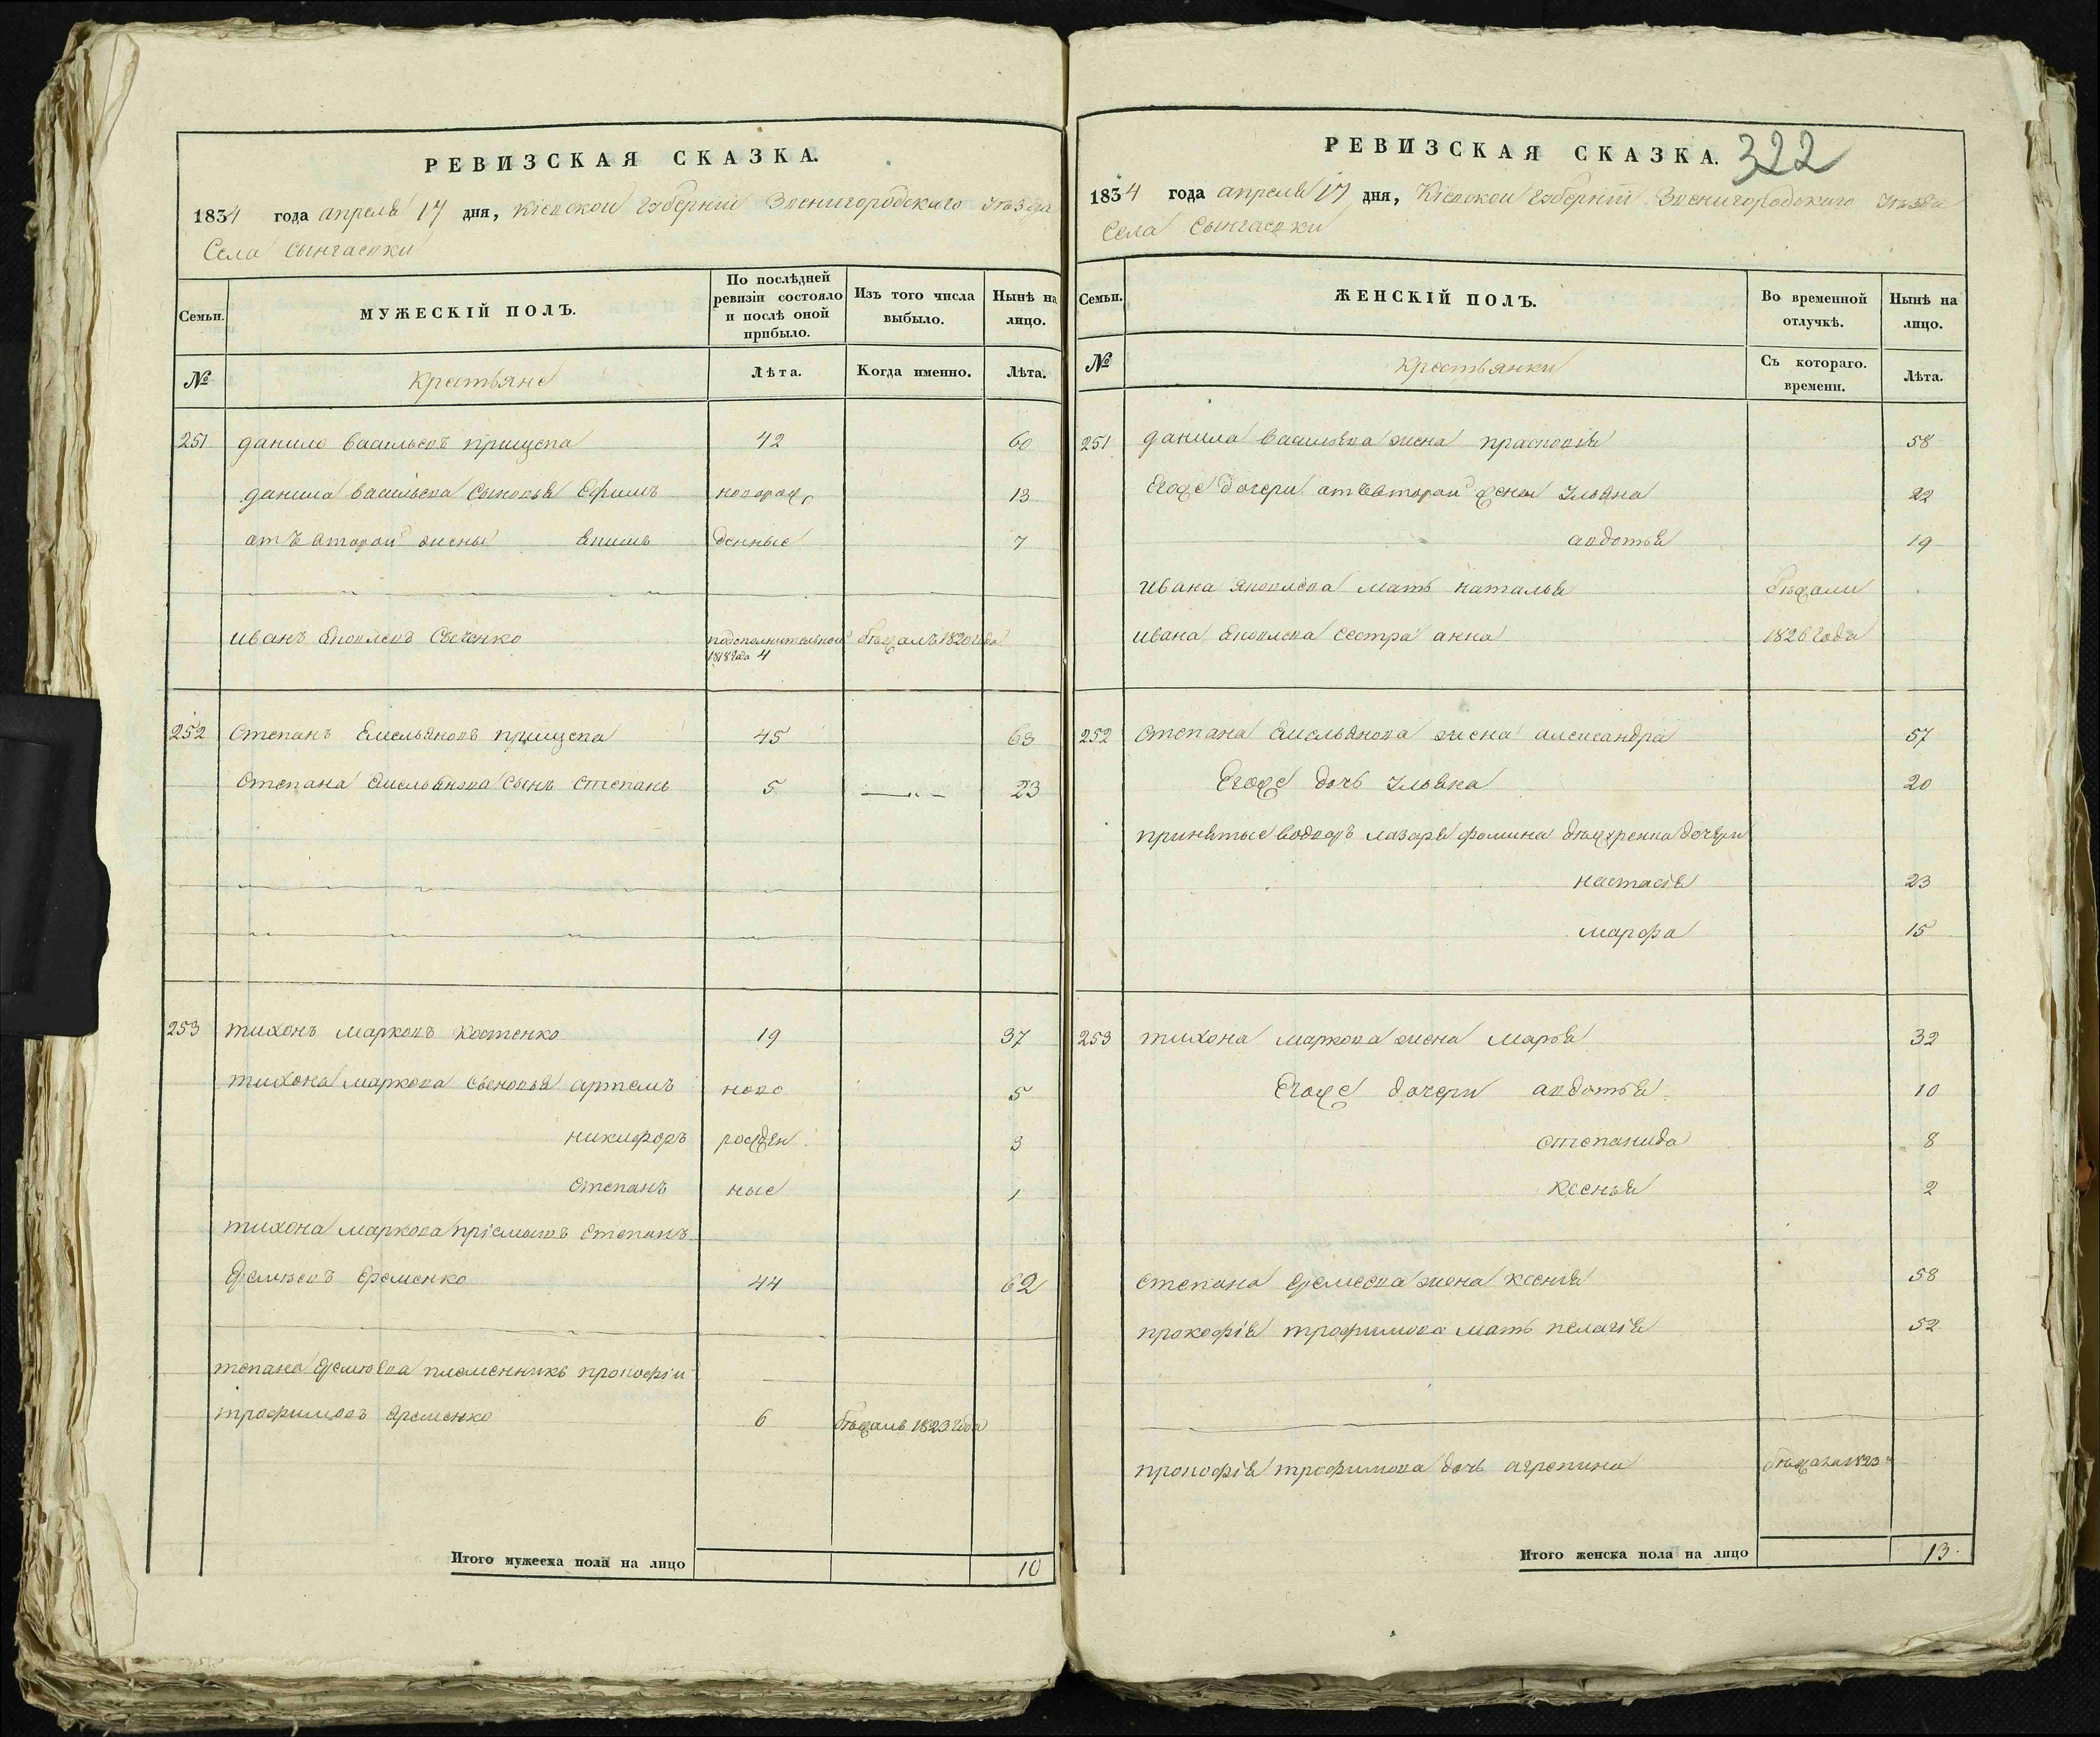 РЕВИЗСКАЯ СКАЗКА.
1834 года апреля 17 дня, Кіевской губерніи Звенигородского уѣзда
Села Сынгаевки
Семьи.
МУЖЕСКІЙ ПОЛЪ.
По послѣдней ревизіи состояло и послѣ оной прибыло.
Изъ того числа выбыло.
Нынѣ на лицо.
№
Крестьяне
Лѣта.
Когда именно.
Лѣта.
251 данило васильевъ прищепа 42 60
данила васильева сыновья Ефимъ новорож, 13
отъ второй жены Якимъ денные 7
иванъ яковлевъ подополнительной 1818 года 4 бѣжалъ 1820 года
252 Степанъ Емельяновъ прищепа 45 63
Степана Емельянова сынъ Степанъ 5 23
253 тихонъ марковъ Костенко 19 37
тихона маркова сыновья артемъ ново 5
никифоръ рожден 3
Степанъ ные 1
тихона маркова пріемышъ Степанъ
Яремѣевъ Еременко 44 62
тепана Яремѣева племенникъ прокофіи
трофимовъ Яременко 6 бѣжалъ 1823 года
Итого мужеска пола на лицо 10
РЕВИЗСКАЯ СКАЗКА. 322
1834 года апреля 17 дня, Кіевской губерніи Звенигородского уѣзда
Села Сынгаевки
Семьи.
ЖЕНСКІЙ ПОЛЪ.
Во временной отлучкѣ.
Нынѣ на лицо.
№
Крестьянки
Съ котораго. времени.
Лѣта.
251 данила васильева жена прасковія 58
Егоже дочери отъ второй жены Ульяна 22
авдотья 19
ивана яковлева мать наталья бѣжали
ивана яковлева сестра анна 1826 года
252 Степана Емельянова жена александра 57
Егоже дочь Ульяна 20
принятые водворъ лазаря фомина дочери
настасія 23
марфа 15
253 тихона маркова жена марья 32
Егоже дочери авдотья 10
степанида 8
ксенья 2
степана Яремеева жена ксенія 58
прокофія трофимова мать пелагія 52
прокофія трофимова дочь агрепина бѣжала 1823
Итого женска пола на лицо 13.